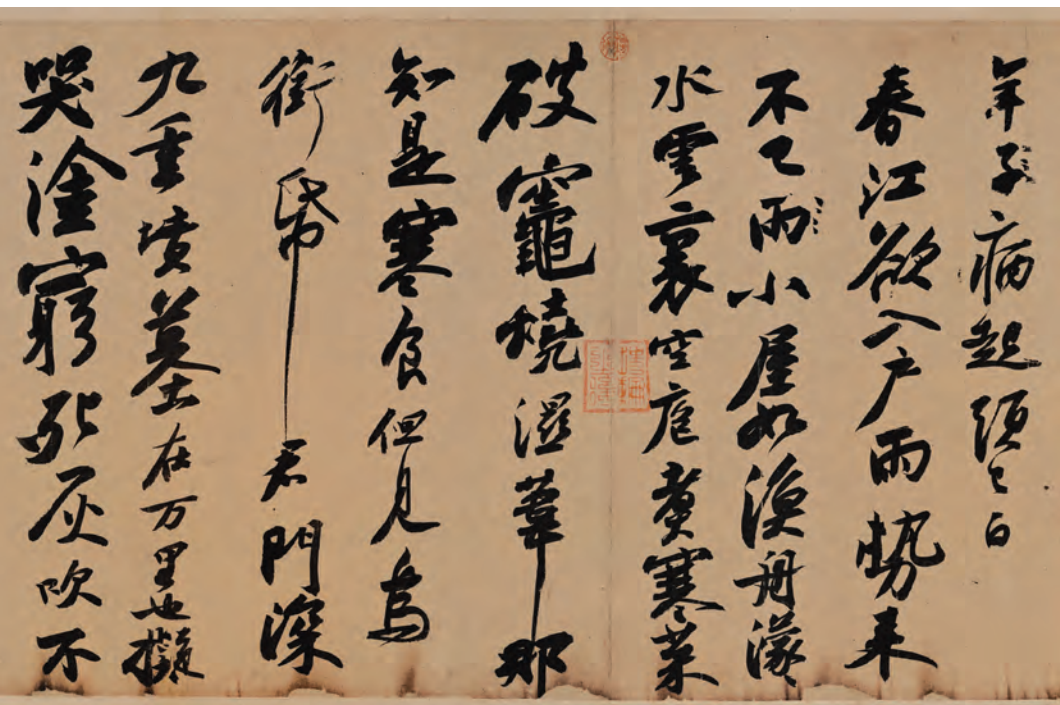 年子病起頭已白
春江欲入戶雨勢来
不已雨小屋如漁舟濛〻
水雲裏空庖煮寒菜
破竈燒濕葦那
知是寒食但見烏
銜帋君門深
九重墳墓在万里也擬
哭塗窮死灰吹不